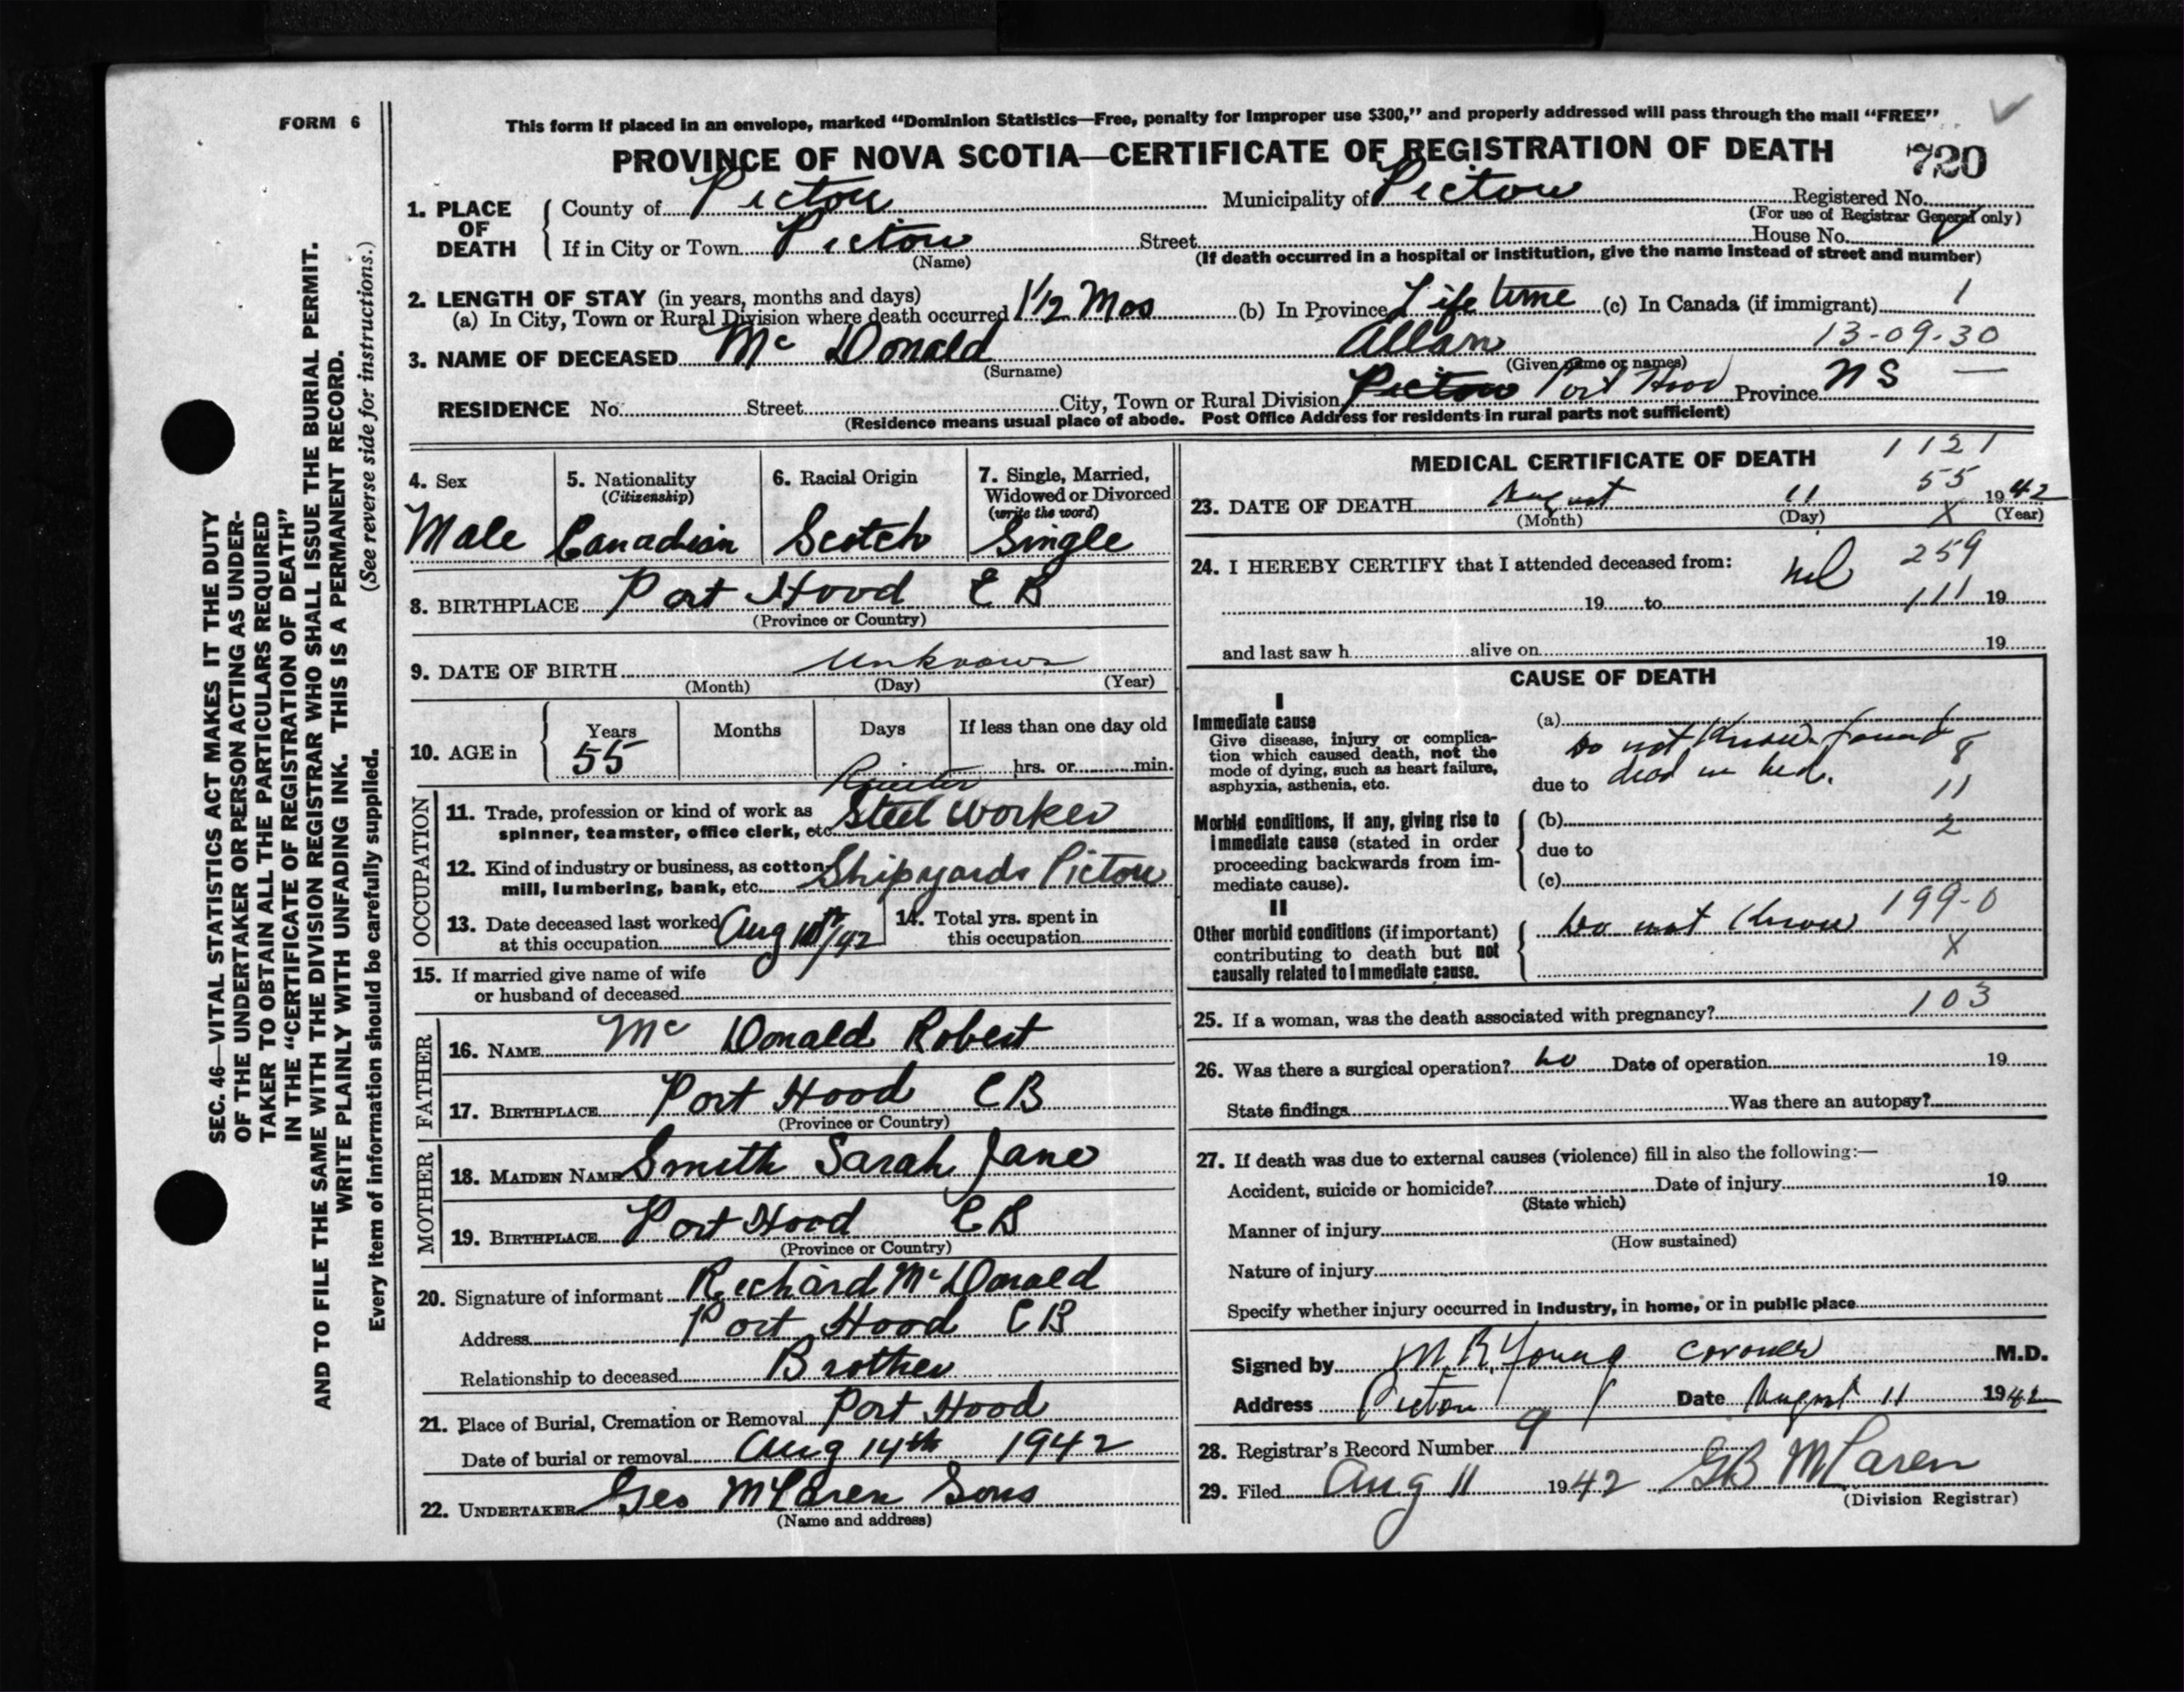 FORM 6
This form if placed in an envelope, marked “Dominion Statistics—Free, penalty for improper use $300,” and properly addressed will pass through the mail “FREE”
PROVINCE OF NOVA SCOTIA—CERTIFICATE OF REGISTRATION OF DEATH 720
1. PLACE OF DEATH
County of Pictou Municipality of Pictou Registered No.
(For use of Registrar General only)
If in City or Town Pictou Street House No.
(Name) (If death occurred in a hospital or institution, give the name instead of street and number)
2. LENGTH OF STAY (in years, months and days)
(a) In City, Town or Rural Division where death occurred 1 1/2 Mos (b) In Province Life time (c) In Canada (if immigrant) 1
3. NAME OF DECEASED Mc Donald Allan 13-09-30
(Surname) (Given name or names)
RESIDENCE No. Street City, Town or Rural Division Pictou Port Hood Province N S —
(Residence means usual place of abode. Post Office Address for residents in rural parts not sufficient)
4. Sex
Male
5. Nationality
(Citizenship)
Canadian
6. Racial Origin
Scotch
7. Single, Married,
Widowed or Divorced
(write the word)
Single
8. BIRTHPLACE Port Hood C B
(Province or Country)
9. DATE OF BIRTH Unknown
(Month) (Day) (Year)
10. AGE in
Years Months Days If less than one day old
55 hrs. or min.
OCCUPATION
11. Trade, profession or kind of work as
spinner, teamster, office clerk, etc. Steel Worker
12. Kind of industry or business, as cotton
mill, lumbering, bank, etc. Shipyards Pictou
13. Date deceased last worked
at this occupation Aug 10th/42
14. Total yrs. spent in
this occupation
15. If married give name of wife
or husband of deceased
FATHER
16. NAME Mc Donald Robert
17. BIRTHPLACE Port Hood C B
(Province or Country)
MOTHER
18. MAIDEN NAME Smith Sarah Jane
19. BIRTHPLACE Port Hood C B
(Province or Country)
20. Signature of informant Richard McDonald
Address Port Hood C B
Relationship to deceased Brother
21. Place of Burial, Cremation or Removal Port Hood
Date of burial or removal Aug 14th 1942
22. UNDERTAKER Geo McLaren Sons
(Name and address)
MEDICAL CERTIFICATE OF DEATH 1121
55
23. DATE OF DEATH August 11 1942
(Month) (Day) X (Year)
24. I HEREBY CERTIFY that I attended deceased from: nil 259
19 to 111 19
and last saw h alive on 19
CAUSE OF DEATH
I
Immediate cause
Give disease, injury or complica-
tion which caused death, not the
mode of dying, such as heart failure,
asphyxia, asthenia, etc.
(a) Do not know found 8
due to dead in bed. 11
Morbid conditions, if any, giving rise to
immediate cause (stated in order
proceeding backwards from im-
mediate cause).
(b) 2
due to
(c)
II
Other morbid conditions (if important)
contributing to death but not
causally related to immediate cause.
Do not know 199-0
X
25. If a woman, was the death associated with pregnancy? 103
26. Was there a surgical operation? no Date of operation 19
State findings Was there an autopsy?
27. If death was due to external causes (violence) fill in also the following:—
Accident, suicide or homicide? Date of injury 19
(State which)
Manner of injury
(How sustained)
Nature of injury
Specify whether injury occurred in industry, in home, or in public place
Signed by M. R. Young Coroner M.D.
Address Pictou Date August 11 1942
28. Registrar's Record Number 9
29. Filed Aug 11 1942 GB McLaren
(Division Registrar)
SEC. 46—VITAL STATISTICS ACT MAKES IT THE DUTY
OF THE UNDERTAKER OR PERSON ACTING AS UNDER-
TAKER TO OBTAIN ALL THE PARTICULARS REQUIRED
IN THE “CERTIFICATE OF REGISTRATION OF DEATH”
AND TO FILE THE SAME WITH THE DIVISION REGISTRAR WHO SHALL ISSUE THE BURIAL PERMIT.
WRITE PLAINLY WITH UNFADING INK. THIS IS A PERMANENT RECORD.
(See reverse side for instructions.)
Every item of information should be carefully supplied.